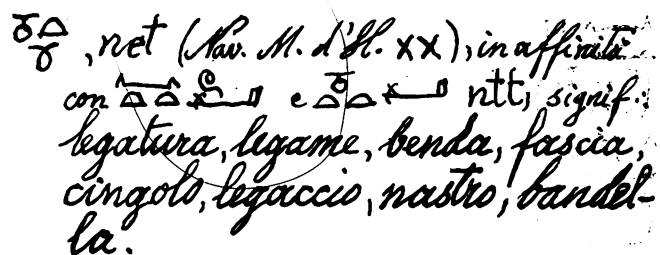 , net (Nav. M. d'H. XX), in affinità
con e ntt, signif.
legatura, legame, benda, fascia,
cingolo, legaccio, nastro, bandel-
la.